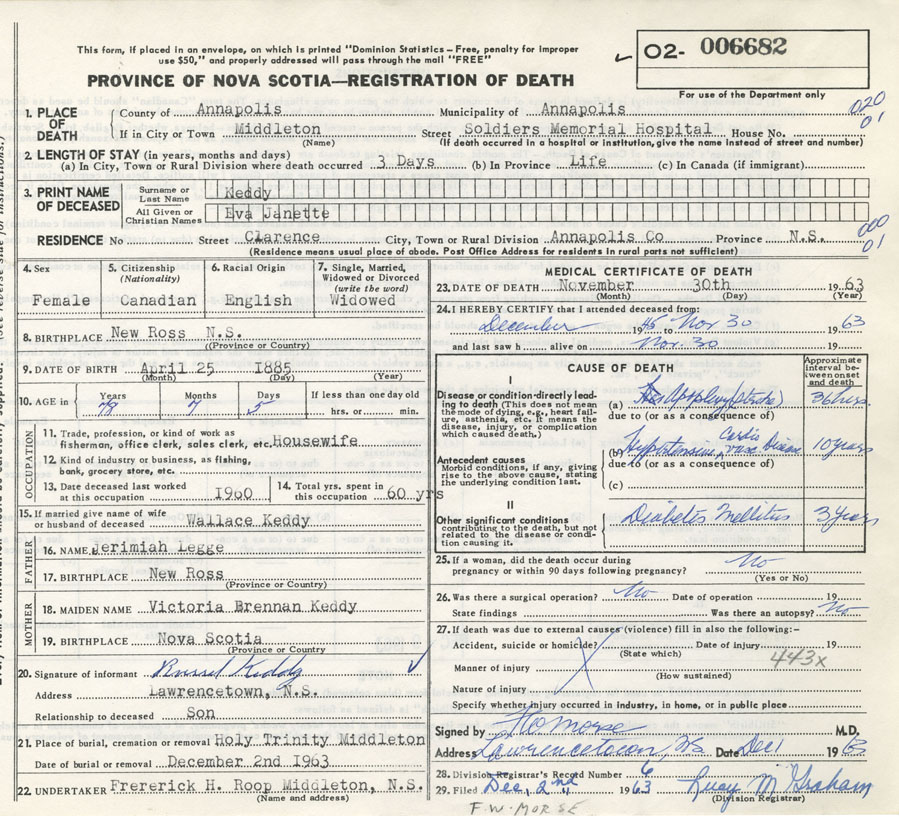 This form, if placed in an envelope, on which is printed "Dominion Statistics — Free, penalty for improper
use $50," and properly addressed will pass through the mail "FREE"
02- 006682
PROVINCE OF NOVA SCOTIA—REGISTRATION OF DEATH
For use of the Department only
1. PLACE OF DEATH
County of Annapolis Municipality of Annapolis
020
01
If in City or Town Middleton Street Soldiers Memorial Hospital House No.
(Name) (If death occurred in a hospital or institution, give the name instead of street and number)
2. LENGTH OF STAY (in years, months and days)
(a) In City, Town or Rural Division where death occurred 3 Days (b) In Province Life (c) In Canada (if immigrant)
3. PRINT NAME OF DECEASED
Surname or Last Name Keddy
All Given or Christian Names Eva Janette
000
01
RESIDENCE No Street Clarence City, Town or Rural Division Annapolis Co Province N.S.
(Residence means usual place of abode. Post Office Address for residents in rural parts not sufficient)
4. Sex
Female
5. Citizenship (Nationality)
Canadian
6. Racial Origin
English
7. Single, Married, Widowed or Divorced (write the word)
Widowed
8. BIRTHPLACE New Ross N.S.
(Province or Country)
9. DATE OF BIRTH April 25 1885
(Month) (Day) (Year)
10. AGE in Years 78 Months 7 Days 5 If less than one day old hrs. or min.
OCCUPATION
11. Trade, profession, or kind of work as
fisherman, office clerk, sales clerk, etc. Housewife
12. Kind of industry or business, as fishing,
bank, grocery store, etc.
13. Date deceased last worked
at this occupation 1960
14. Total yrs. spent in
this occupation 60 yrs
15. If married give name of wife
or husband of deceased Wallace Keddy
FATHER
16. NAME Jerimiah Legge
17. BIRTHPLACE New Ross
(Province or Country)
MOTHER
18. MAIDEN NAME Victoria Brennan Keddy
19. BIRTHPLACE Nova Scotia
(Province or Country)
20. Signature of informant Keddy
Address Lawrencetown, N.S.
Relationship to deceased Son
21. Place of burial, cremation or removal Holy Trinity Middleton
Date of burial or removal December 2nd 1963
22. UNDERTAKER Frererick H. Roop Middleton, N.S.
(Name and address)
MEDICAL CERTIFICATE OF DEATH
23. DATE OF DEATH November 30th 1963
(Month) (Day) (Year)
24. I HEREBY CERTIFY that I attended deceased from:
December 19 to Nov 30 1963
and last saw h alive on Nov. 30 19
CAUSE OF DEATH
Approximate interval between onset and death
I
Disease or condition directly leading to death (This does not mean the mode of dying, e.g., heart failure, asthenia, etc. It means the disease, injury, or complication which caused death.)
(a) Apoplexy (stroke) 36 hrs.
due to (or as a consequence of)
Antecedent causes
Morbid conditions, if any, giving rise to the above cause, stating the underlying condition last.
(b) Hypertensive Cardio Vasc Disease 10 years
due to (or as a consequence of)
(c)
II
Other significant conditions
contributing to the death, but not related to the disease or condition causing it.
Diabetes Mellitus 3 Years
25. If a woman, did the death occur during
pregnancy or within 90 days following pregnancy? No
(Yes or No)
26. Was there a surgical operation? No Date of operation 19
State findings Was there an autopsy? No
27. If death was due to external causes (violence) fill in also the following:-
Accident, suicide or homicide? Date of injury 19
(State which)
443x
Manner of injury
(How sustained)
Nature of injury
Specify whether injury occurred in industry, in home, or in public place
Signed by Morse M.D.
Address Lawrencetown, NS Date Dec 1 1963
28. Division Registrar's Record Number 6
29. Filed Dec, 2nd 1963 Lucy M Graham
(Division Registrar)
F. W. MORSE